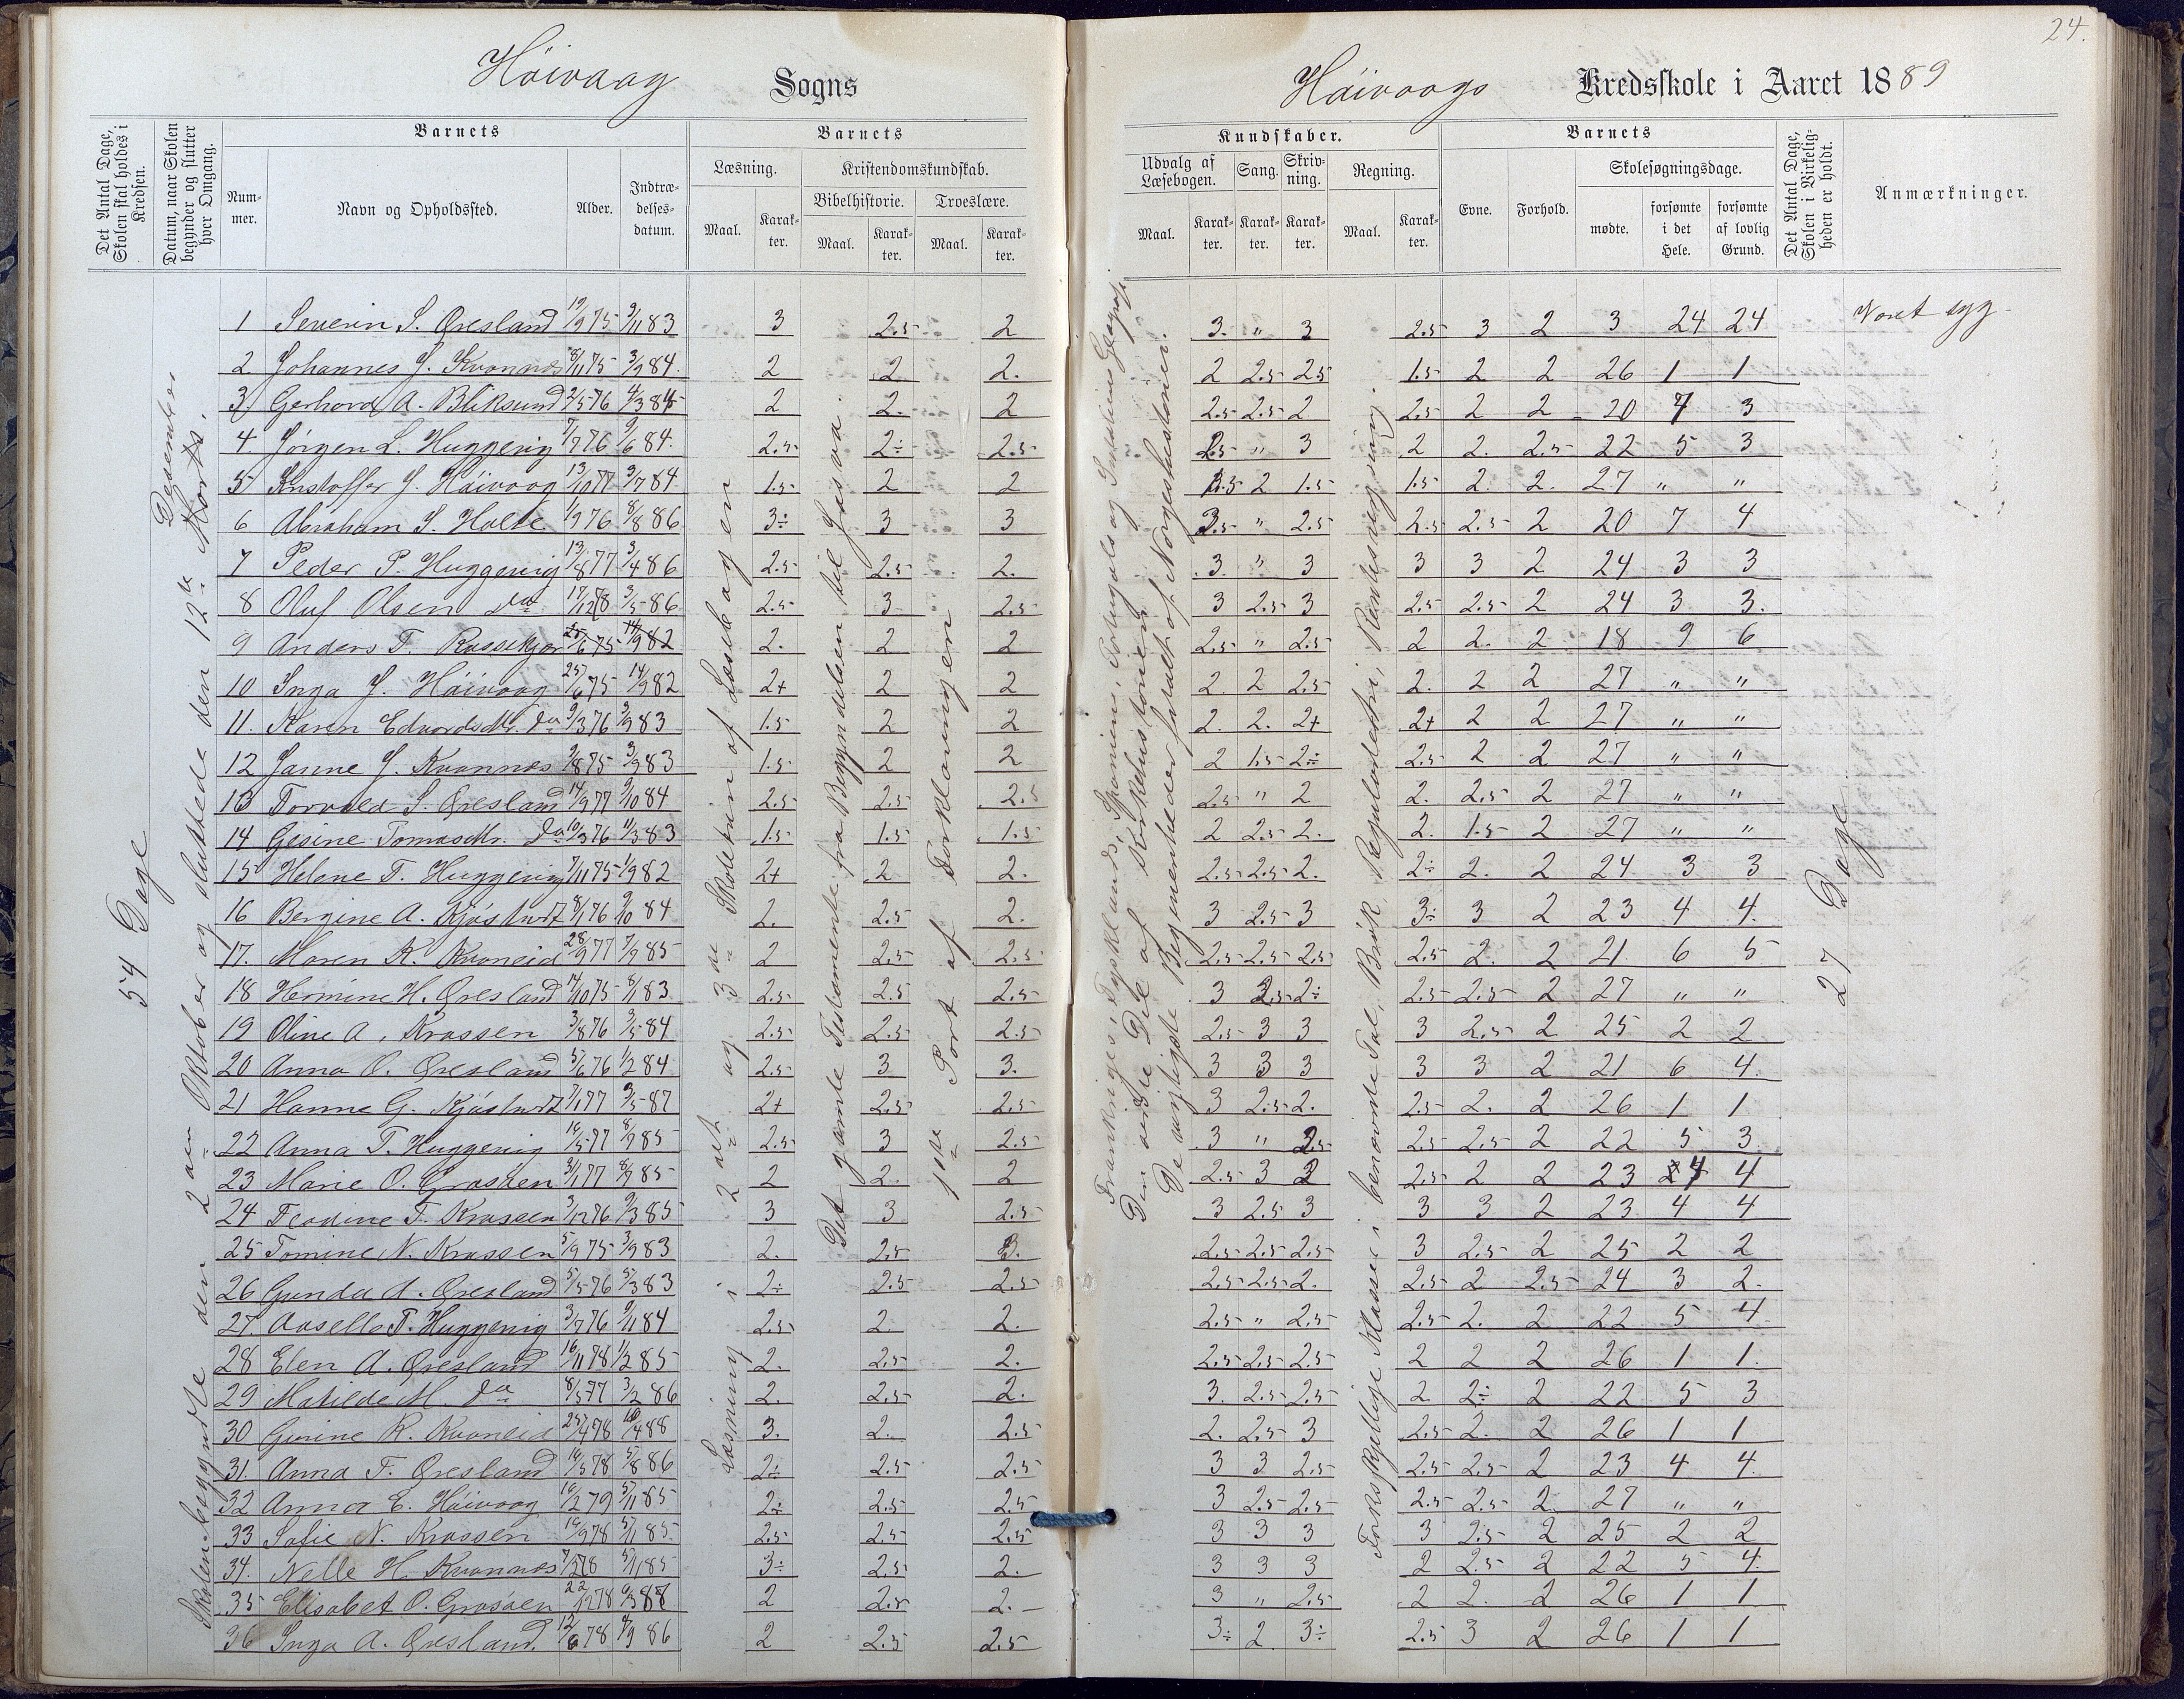 24.
Höivaag Sogns
Höivaags Kredsskole i Aaret 1889
Det Antal Dage, Skolen skal holdes i Kredsen.
Datum, naar Skolen begynder og slutter hver Omgang.
Barnets
Nummer.
Navn og Opholdssted.
Alder.
Indtrædelsesdatum.
Barnets
Læsning.
Maal.
Karakter.
Kristendomskundskab.
Bibelhistorie.
Maal.
Karakter.
Troeslære.
Maal.
Karakter.
Kundskaber.
Udvalg af Læsebogen.
Maal.
Karakter.
Sang.
Karakter.
Skrivning.
Karakter.
Regning.
Maal.
Karakter.
Barnets
Evne.
Forhold.
Skolesøgningsdage.
mødte.
forsømte i det Hele.
forsømte af lovlig Grund.
Det Antal Dage, Skolen i Virkeligheden er holdt.
Anmærkninger.
54 Dage
Skolen begyndte den 2den Oktober og sluttede den 12te Desember
Læsning i 2det og 3die Skoletrin af Læsebogen
Det gamle Testamente fra Begyndelsen til Josva.
1ste Part af Forklaringen
Frankriges, Tysklands, Spaniens, Portugals og Geograf.
Den anden Del af Kirkehistorien
De vigtigste Begivenheder fortalt af Norgeshistorien.
Forskjellige Klasser i benævnte Tal, Brøk, Reguladetri, Rentesregning.
27 Dage
1 Severin S. Øresland 19/9 75 3/11 83 3 2.5 2 3. " 3 2.5 3 2 3 24 24 Været syg
2 Johannes J. Kvannes 8/11 75 3/9 84. 2 2 2. 2 2.5 2.5 1.5 2 2 26 1 1
3 Gerhard A. Bliksund 2/5 76 4/3 84 2 2. 2 2.5 2.5 2 2.5 2 2 20 7 3
4 Jørgen L. Huggenig 7/7 76 9/6 84. 2.5 2÷ 2.5 2.5 " 3 2 2. 2.5 22 5 3
5 Kristoffer J. Höivaag 13/10 77 3/7 84 1.5 2 2 2.5 2 1.5 1.5 2. 2. 27 " "
6 Abraham S. Holte 1/9 76 8/8 86 3÷ 3 3 3.5 " 2.5 2.5 2.5 2 20 7 4
7 Peder P. Huggenig 13/8 77 3/4 86 2.5 2.5 2. 3. " 3 3 3 2 24 3 3
8 Oluf Olsen do 17/12 78 3/5 86 2.5 3 2.5 3 2.5 3 2.5 2.5 2 24 3 3.
9 Anders F. Rossekjær 25/6 75 14/9 82 2. 2 2 2.5 " 2.5 2 2. 2 18 9 6
10 Inga J. Höivaag 25/6 75 14/9 82 2+ 2 2 2. 2 2.5 2. 2 2 27 " "
11. Karen Edvardsdtr. do 9/3 76 3/9 83 1.5 2 2 2. 2. 2+ 2+ 2 2 27 " "
12 Janne J. Kvannes 9/8 75 3/9 83 1.5 2 2 2 1.5 2÷ 2.5 2 2 27 " "
13 Torvald S. Øresland 14/9 77 9/10 84 2.5 2.5 2.5 2.5 " 2 2. 2.5 2 27 " "
14 Gesine Tomasdtr. do 10/3 76 11/3 83 1.5 1.5 1.5 2 2.5 2. 2. 1.5 2 27 " "
15 Helene T. Huggenig 7/11 75 1/9 82 2+ 2 2. 2.5 2.5 2. 2÷ 2. 2 24 3 3
16 Bergine A. Kjøstvedt 8/1 76 9/10 84 2. 2.5 2. 3 2.5 3 3÷ 3 2 23 4 4.
17. Maren K. Kvaneid 28/9 77 7/9 85 2 2.5 2.5 2.5 2.5 2.5 2.5 2. 2 21 6 5
18 Hermine H. Øresland 14/10 75 8/1 83 2.5 2.5 2.5 3 2.5 2÷ 2.5 2.5 2 27 " "
19 Oline A. Krossen 3/8 76 3/5 84 2.5 2.5 2.5 2.5 3 3 3 2.5 2 25 2 2
20 Anna O. Øresland 5/6 76 1/2 84 2.5 3 3. 3 3 3 3 3 2 21 6 4.
21 Hanne G. Kjøstvedt 7/1 77 3/5 87 2+ 2.5 2.5 3 2.5 2. 2.5 2. 2 26 1 1
22 Anna T. Huggenig 16/5 77 8/9 85 2.5 3 2.5 3 " 2.5 2.5 2.5 2 22 5 3
23 Marie O. Grosøen 3/1 77 8/9 85 2 2. 2 2.5 3 2 2.5 2 2 23 4 4
24 Teodine T. Krossen 3/12 76 9/3 85 3 3 2.5 3 2.5 3 3 3 2 23 4 4
25 Tomine N. Krossen 5/9 75 3/9 83 2. 2.5 3. 2.5 2.5 2.5 3 2.5 2 25 2 2
26 Gunda A. Øresland 5/5 76 5/3 83 2÷ 2.5 2.5 2.5 2.5 2. 2.5 2 2.5 24 3 2.
27. T. Huggenig 3/7 76 9/11 84 2.5 2. 2. 2.5 " 2.5 2.5 2. 2 22 5 4
28 Elen A. Øresland 16/11 78 1/2 85 2. 2.5 2. 2.5 2.5 2.5 2 2 2 26 1 1.
29 Matilde M. do 8/5 77 3/2 86 2. 2.5 2. 3. 2.5 2.5 2 2÷ 2 22 5 3
30 Gurine K. Kvaneid 25/4 78 10/4 88 3. 2. 2.5 2. 2.5 3 2.5 2. 2 26 1 1
31. Anna T. Øresland 16/5 78 5/8 86 2÷ 2.5 2.5 3 3 2.5 2.5 2.5 2 23 4 4.
32 Anna E. Höivaag 16/2 79 5/11 85 2÷ 2.5 2.5 3 2.5 2.5 2.5 2.5 2. 27 " "
33 Sofie N. Krossen 16/9 78 5/1 85 2.5 2.5 2.5 3 3 3 3 2.5 2 25 2 2
34. Nelle H. Kvannes 7/2 78 5/1 85 3÷ 2.5 2. 3 3 3 2 2.5 2 22 5 4.
35 Elisabet O. Grosøen 22/12 78 9/3 88 2 2.5 2. 3 " 2.5 2 2. 2 26 1 1
36 Inga A. Øresland. 12/6 78 4/9 86 2 2.5 2.5 3÷ 2. 3÷ 2.5 3 2 26 1 1